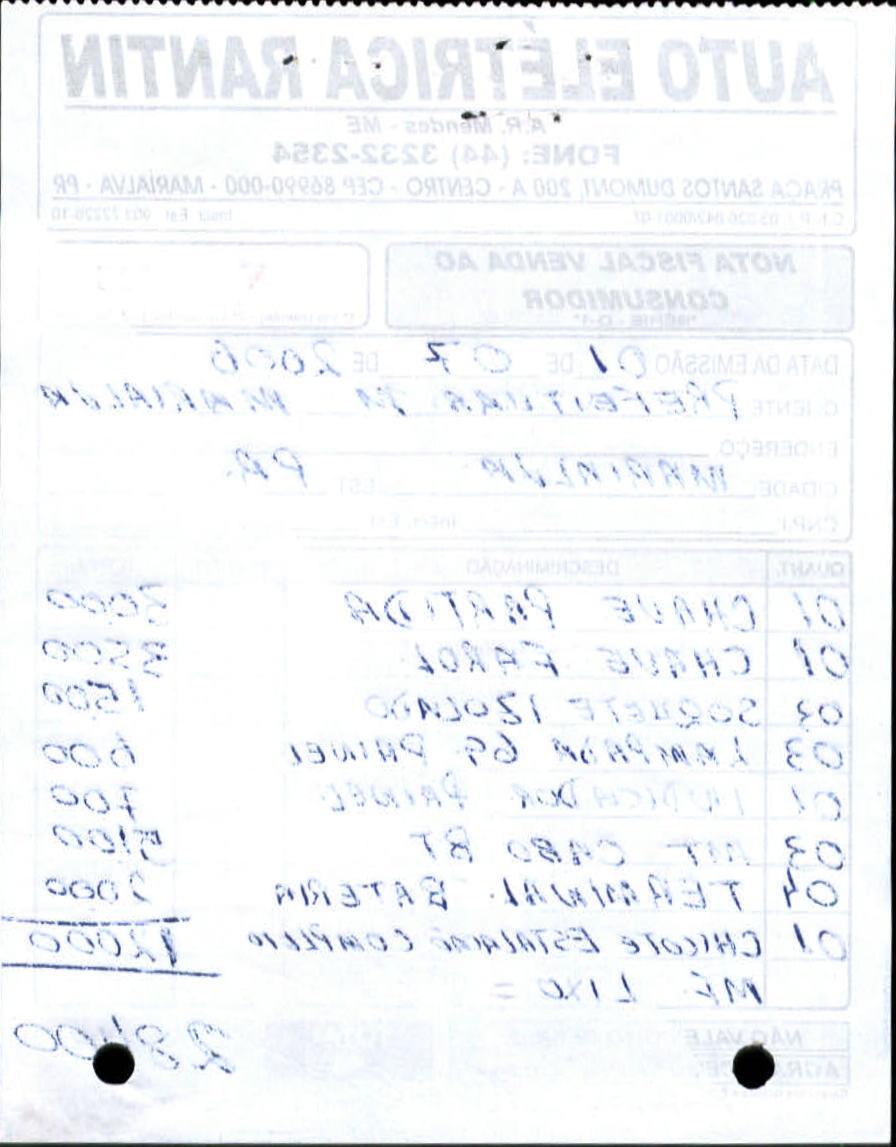 AUTO ELÉTRICA RANTIN
A.R. Mendes - ME
FONE: (44) 3232-2354
PRAÇA SANTOS DUMONT, 200 A - CENTRO - CEP 86990-000 - MARIALVA - PR
NOTA FISCAL VENDA AO
CONSUMIDOR
DATA DA EMISSÃO 01 DE 07 DE 2006
CLIENTE PREFEITURA MARIALVA
ENDEREÇO
CIDADE MARIALVA EST PR
CNPJ Inscr. Est.
QUANT. DESCRIMINAÇÃO
01 CHAVE PARTIDA 3000
01 CHAVE FAROL 3500
SOQUETE IZOLADO 1500
03 LAMPADA 69 PAINEL 600
01 INDICADOR PAINEL 700
03 MT CABO BT
04 TERMINAL BATERIA 2000
01 CHICOTE 12000
LIXO =
NÃO VALE